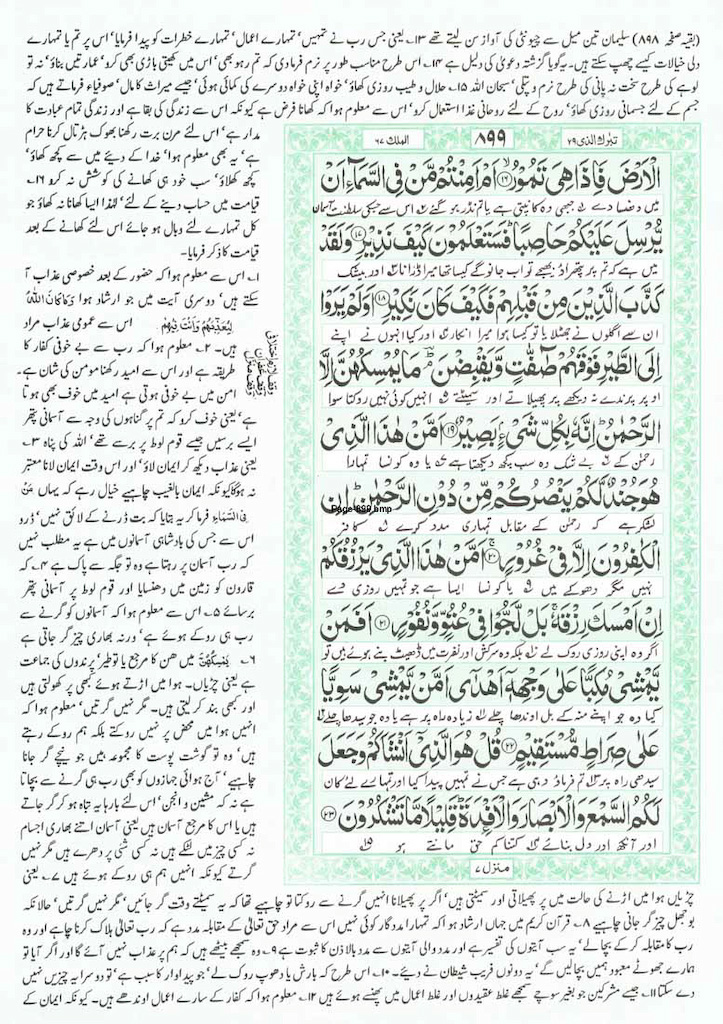 (بقیہ صفحہ ۸۹۸) سلیمان تین میل سے چیونٹی کی آواز سن لیتے تھے ۱۳؎ یعنی جس رب نے تمہیں' تمہارے اعمال' تمہارے خطرات کو پیدا فرمایا' اس پر تم یا تمہارے
دلی خیالات کیسے چھپ سکتے ہیں۔ یہ گویا گزشتہ دعویٰ کی دلیل ہے ۱۴؎ اس طرح مناسب طور پر نرم فرما دی کہ تم رہو بھی' اس میں کھیتی باڑی بھی کرو' عمارتیں بناؤ' نہ تو
لوہے کی طرح سخت نہ پانی کی طرح نرم و پتلی' سبحان اللہ ۱۵؎ حلال و طیب روزی کھاؤ' خواہ اپنی خواہ دوسرے کی کمائی ہوئی' جیسے میراث کا مال' صوفیاء فرماتے ہیں کہ
جسم کے لئے جسمانی روزی کھاؤ' روح کے لئے روحانی غذا استعمال کرو' اس سے معلوم ہوا کہ کھانا فرض ہے کیونکہ اس سے زندگی کی بقا ہے اور زندگی تمام عبادت کا
مدار ہے' اس لئے مرن برت رکھنا بھوک ہڑتال کرنا حرام
ہے' یہ بھی معلوم ہوا' خدا کے دیئے میں سے کچھ کھاؤ'
کچھ کھلاؤ' سب خود ہی کھانے کی کوشش نہ کرو ۱۶؎
قیامت میں حساب دینے کے لئے' لہٰذا ایسا کھانا نہ کھاؤ جو
کل تمہارے لئے وبال ہو جائے اس لئے کھانے کے بعد
قیامت کا ذکر فرمایا۔
۱؎ اس سے معلوم ہوا کہ حضور کے بعد خصوصی عذاب آ
سکتے ہیں' دوسری آیت میں جو ارشاد ہوا وَمَا كَانَ اللهُ
لِيُعَذِّبَهُمْ وَاَنْتَ فِيْهِمْ اس سے عمومی عذاب مراد
ہیں۔ ۲؎ معلوم ہوا کہ رب سے بے خوفی کفار کا
طریقہ ہے اور اس سے امید رکھنا مومن کی شان ہے۔
امن میں بے خوفی ہوتی ہے امید میں خوف بھی ہوتا
ہے' یعنی خوف کرو کہ تم پر گناہوں کی وجہ سے آسمانی پتھر
ایسے برسیں جیسے قوم لوط پر برسے تھے' اللہ کی پناہ ۳؎
یعنی عذاب دیکھ کر ایمان لاؤ' اور اس وقت ایمان لانا معتبر
نہ ہوگا کیونکہ ایمان بالغیب چاہیے خیال رہے کہ یہاں مَنْ
فِي السَّمَاءِ فرما کر یہ بتایا کہ بت ڈرنے کے لائق نہیں' ڈرو
اس سے جس کی بادشاہی آسمانوں میں ہے یہ مطلب نہیں
کہ رب آسمان پر رہتا ہے وہ تو جگہ سے پاک ہے ۴؎ کہ
قارون کو زمین میں دھنسایا اور قوم لوط پر آسمانی پتھر
برسائے ۵؎ اس سے معلوم ہوا کہ آسمانوں کو گرنے سے
رب ہی روکے ہوئے ہے' ورنہ بھاری چیز گر جاتی ہے
۶؎ يُمْسِكُهُنَّ میں ھن کا مرجع یا تو طیر' پرندوں کی جماعت
ہے یعنی چڑیاں۔ ہوا میں اڑتے ہوئے کبھی پر کھولتی ہیں
اور کبھی بند کر لیتی ہیں۔ مگر نہیں گرتیں' معلوم ہوا کہ
انہیں ہوا میں محض پر نہیں روکتے بلکہ ہم روکے رہتے
ہیں' وہ تو گوشت پوست کا مجموعہ ہیں جو نیچے گر جانا
چاہیے' آج ہوائی جہازوں کو بھی رب ہی گرنے سے بچاتا
ہے نہ کہ مشین و انجن' اس لئے بارہا یہ تباہ ہو کر گر جاتے
ہیں یا اس کا مرجع آسمان ہیں یعنی آسمان اتنے بھاری اجسام
نہ کسی چیز میں لٹکے ہیں نہ کسی شئی پر دھرے ہیں مگر نہیں
گرتے کیونکہ انہیں ہم ہی روکے ہوئے ہیں ۷؎ یعنی
تبٰرک الذی ۲۹
۸۹۹
الملک ۶۷
الْاَرْضَ فَاِذَا هِىَ تَمُوْرُ ۙ‏﴿۱۶﴾ اَمْ اَمِنْتُمْ مَّنْ فِى السَّمَآءِ اَنْ
میں دھنسا دے جبھی وہ کانپتی ہے یا تم نڈر ہو گئے اس سے جسکی سلطنت آسمان
يُّرْسِلَ عَلَيْكُمْ حَاصِبًا ؕ فَسَتَعْلَمُوْنَ كَيْفَ نَذِيْرِ ﴿۱۷﴾ وَلَقَدْ
میں ہے کہ تم پر پتھراؤ بھیجے تو اب جانو گے کیسا تھا میرا ڈرانا اور بیشک
كَذَّبَ الَّذِيْنَ مِنْ قَبْلِهِمْ فَكَيْفَ كَانَ نَكِيْرِ ﴿۱۸﴾ اَوَلَمْ يَرَوْا
ان سے اگلوں نے جھٹلایا تو کیسا ہوا میرا انکار اور کیا انہوں نے اپنے
اِلَى الطَّيْرِ فَوْقَهُمْ صٰٓفّٰتٍ وَّيَقْبِضْنَ ؔۘ مَا يُمْسِكُهُنَّ اِلَّا
اوپر پرندے نہ دیکھے پر پھیلاتے اور سمیٹتے انہیں کوئی نہیں روکتا سوا
الرَّحْمٰنُ ؕ اِنَّهٗ بِكُلِّ شَىْءٍۢ بَصِيْرٌ ﴿۱۹﴾ اَمَّنْ هٰذَا الَّذِىْ
رحمٰن کے بے شک وہ سب کچھ دیکھتا ہے یا وہ کونسا تمہارا
هُوَ جُنْدٌ لَّكُمْ يَنْصُرُكُمْ مِّنْ دُوْنِ الرَّحْمٰنِ ؕ اِنِ
لشکر ہے کہ رحمٰن کے مقابل تمہاری مدد کرے کافر
Page-889.bmp
الْكٰفِرُوْنَ اِلَّا فِىْ غُرُوْرٍ ۚ‏﴿۲۰﴾ اَمَّنْ هٰذَا الَّذِىْ يَرْزُقُكُمْ
نہیں مگر دھوکے میں یا کونسا ایسا ہے جو تمہیں روزی دے
اِنْ اَمْسَكَ رِزْقَهٗ ۚ بَلْ لَّجُّوْا فِىْ عُتُوٍّ وَّنُفُوْرٍ ﴿۲۱﴾ اَفَمَنْ
اگر وہ اپنی روزی روک لے بلکہ وہ سرکش اور نفرت میں ڈھیٹ بنے ہوئے ہیں تو
يَّمْشِىْ مُكِبًّا عَلٰى وَجْهِهٖۤ اَهْدٰٓى اَمَّنْ يَّمْشِىْ سَوِيًّا
کیا وہ جو اپنے منہ کے بل اوندھا چلے زیادہ راہ پر ہے یا وہ جو سیدھا چلے
عَلٰى صِرَاطٍ مُّسْتَقِيْمٍ ﴿۲۲﴾ قُلْ هُوَ الَّذِىْۤ اَنْشَاَكُمْ وَجَعَلَ
سیدھی راہ پر تم فرماؤ وہی ہے جس نے تمہیں پیدا کیا اور تمہارے لئے کان
لَكُمُ السَّمْعَ وَالْاَبْصَارَ وَالْاَفْـِٕدَةَ ؕ قَلِيْلًا مَّا تَشْكُرُوْنَ ﴿۲۳﴾
اور آنکھ اور دل بنائے کتنا کم حق مانتے ہو
منزل ۷
چڑیاں ہوا میں اڑنے کی حالت میں پر پھیلاتی اور سمیٹتی ہیں' اگر پر پھیلانا انہیں گرنے سے روکتا تو چاہیے تھا کہ یہ سمیٹتے وقت گر جائیں' مگر نہیں گرتیں' حالانکہ
بوجھل چیز گر جانی چاہیے ۸؎ قرآن کریم میں جہاں ارشاد ہوا کہ تمہارا مددگار کوئی نہیں اس سے مراد حق تعالیٰ کے مقابلہ مدد ہے کہ رب تعالیٰ ہلاک کرنا چاہے اور وہ
رب کا مقابلہ کر کے بچا لے' یہ سب آیتوں کی تفسیر ہے اور مدد والی آیتوں سے مدد بالاذن کا ثبوت ہے ۹؎ وہ سمجھے بیٹھے ہیں کہ ہم پر عذاب نہیں آئے گا اور اگر آیا تو
ہمارے جھوٹے معبود ہمیں بچالیں گے' یہ دونوں فریب شیطان نے دیئے۔ ۱۰؎ اس طرح کہ بارش یا دھوپ روک لے' جو پیداوار کا سبب ہے' تو دوسرا یہ چیزیں نہیں
دے سکتا ۱۱؎ جیسے مشرکین جو بغیر سوچے سمجھے غلط عقیدوں اور غلط اعمال میں پھنسے ہوئے ہیں ۱۲؎ معلوم ہوا کہ کفار کے سارے اعمال اوندھے ہیں۔ کیونکہ ایمان کے